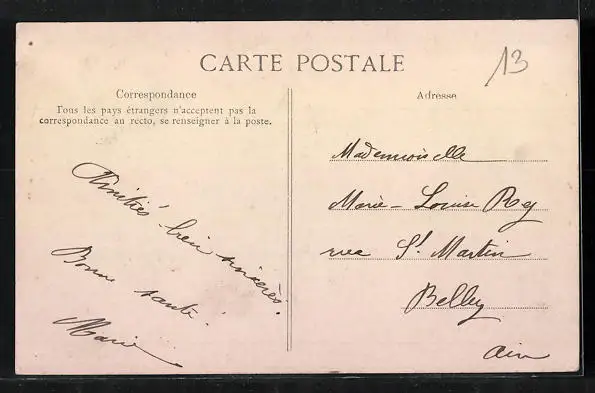 CARTE POSTALE
13
Correspondance
Tous les pays étrangers n'acceptent pas la
correspondance au recto, se renseigner à la poste.
Amitiés bien sincères.
Bonne santé.
Marie
Adresse
Mademoiselle
Marie-Louise Rey
rue St. Martin
Belley
Ain